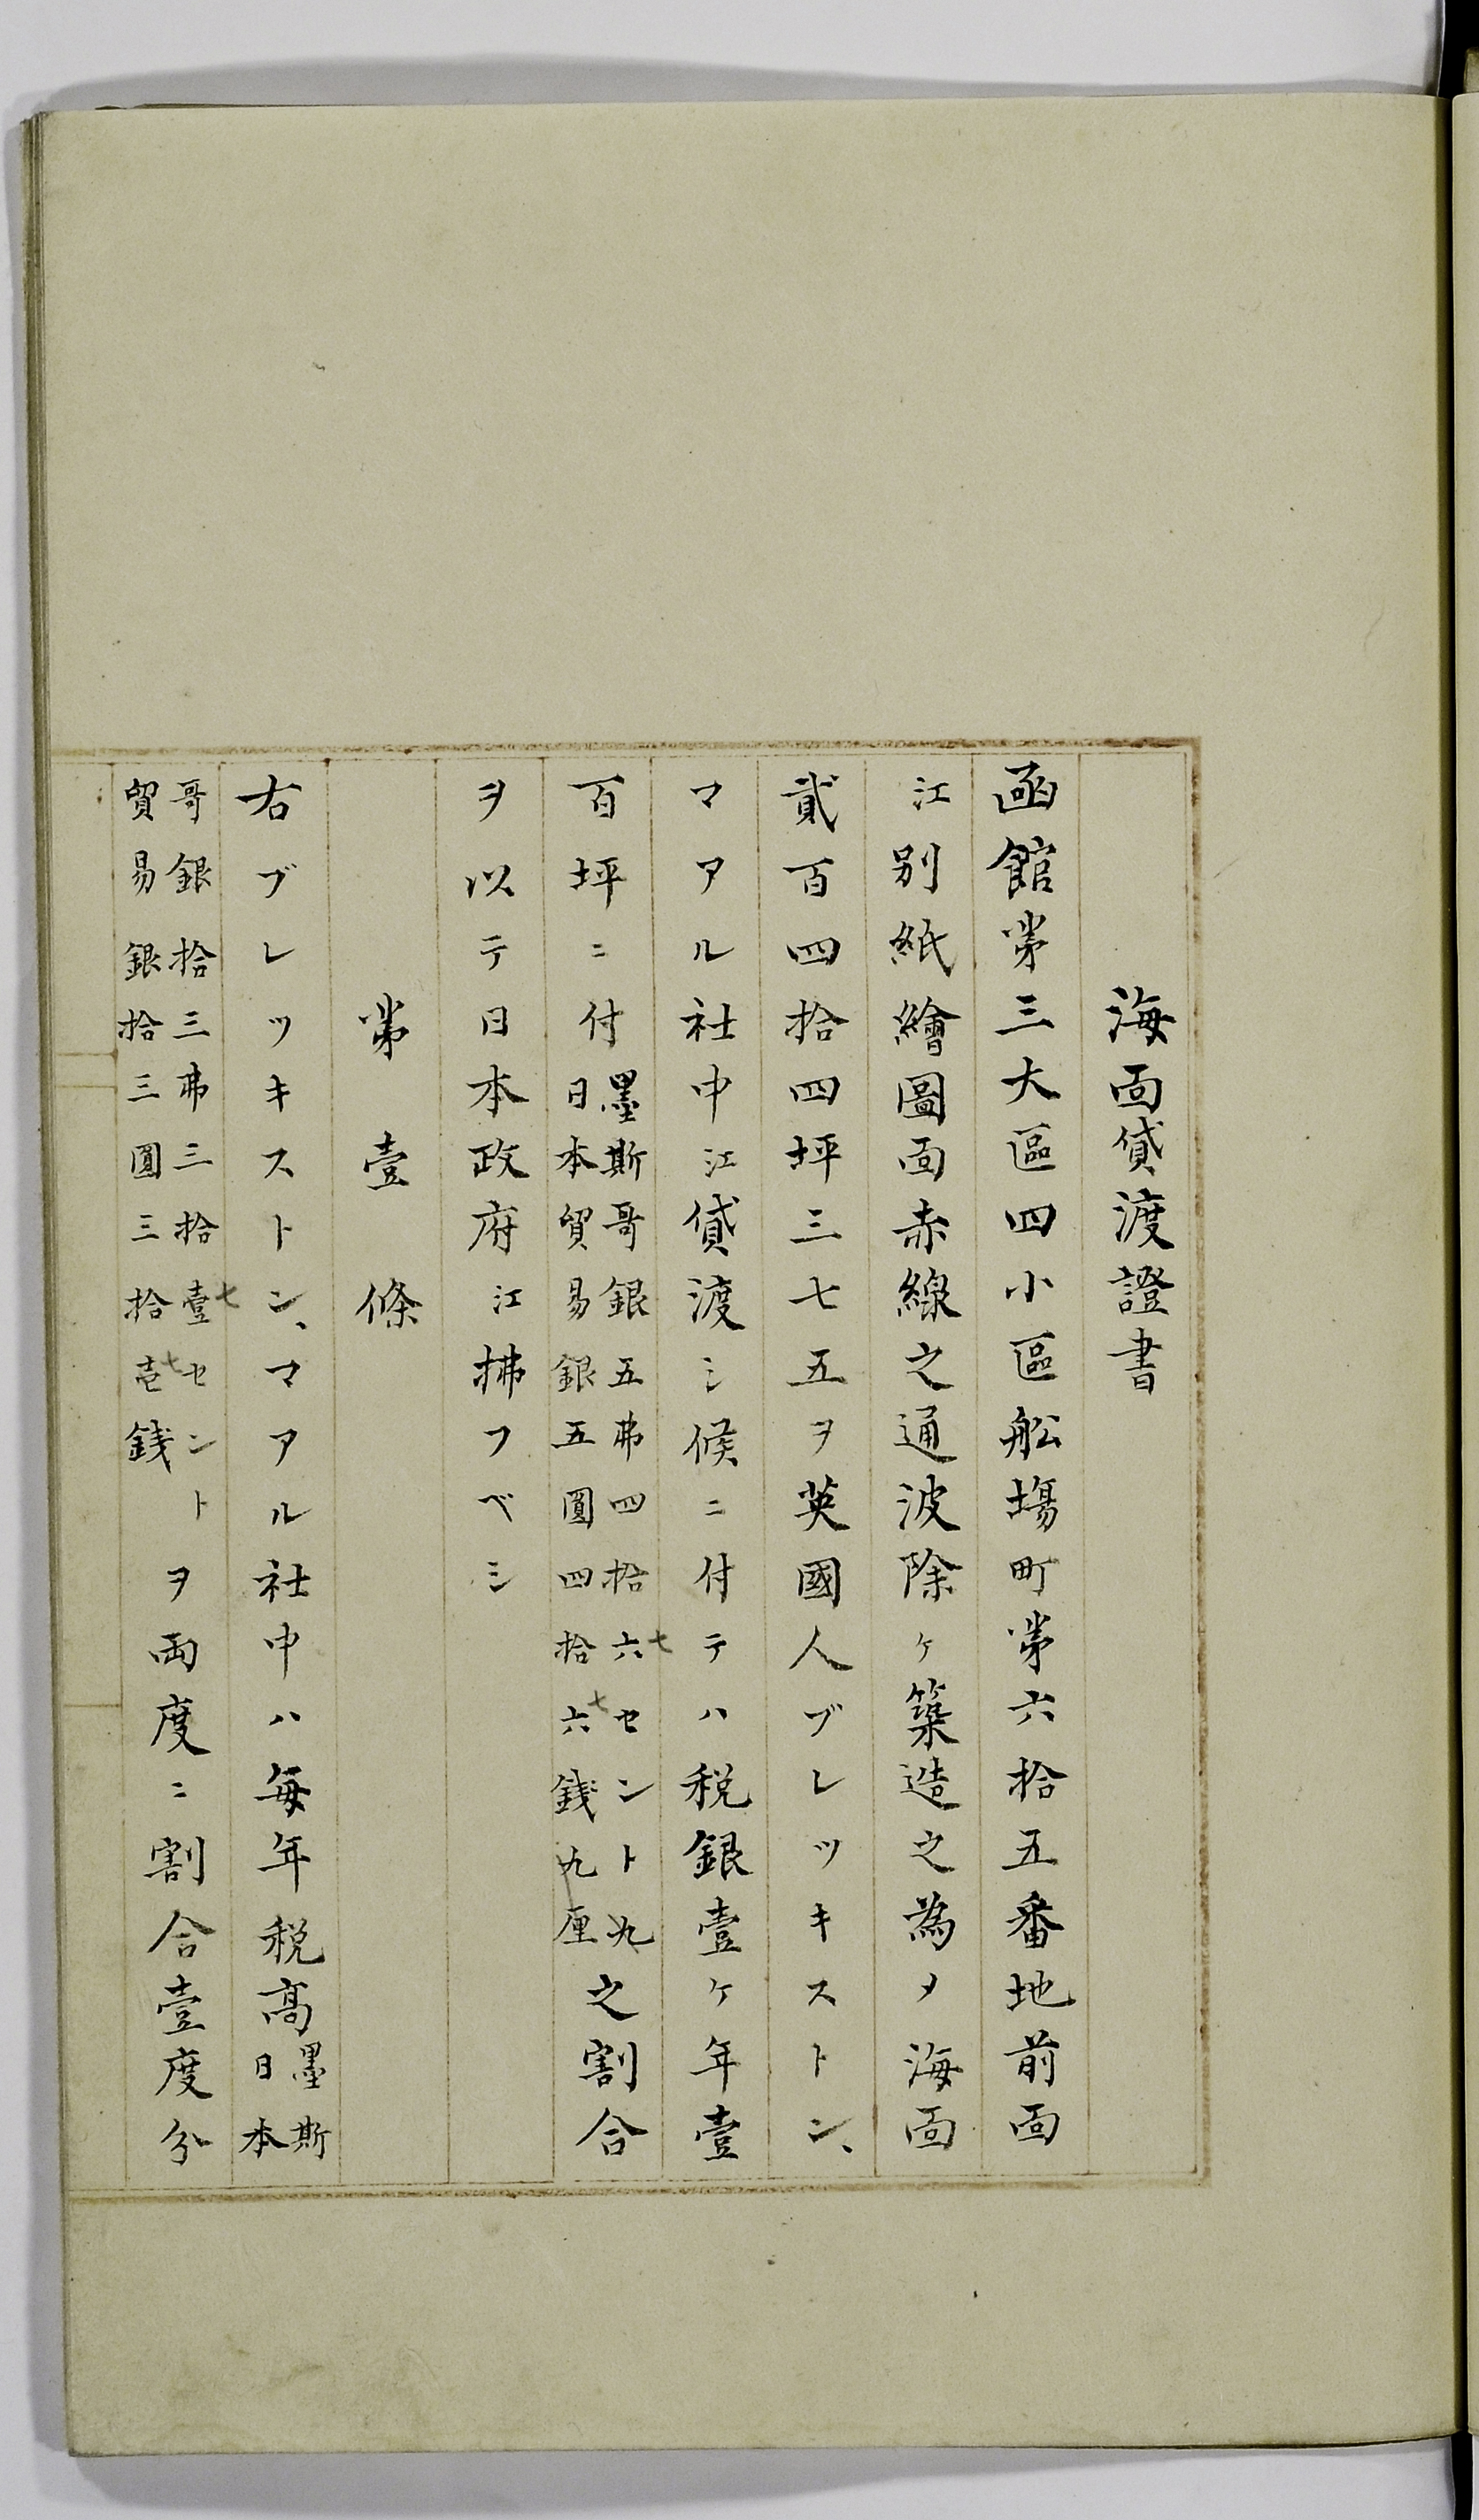 海面貸渡證書
函館苐三大區四小區舩塲町苐六拾五番地前面
江別紙繪圖面赤線之通波除ヶ築造之為メ海面
貳百四拾四坪三七五ヲ英國人ブレッキストン、
マアル社中江貸渡シ候ニ付テハ税銀壹ヶ年壹
百坪ニ付墨斯哥銀五弗四拾六七セント九日本貿易銀五圓四拾六七錢九厘之割合
ヲ以テ日本政府江拂フベシ
苐壹條
右ブレッキストン、マアル社中ハ毎年税髙墨斯日本
哥銀拾三弗三拾壹七セント貿易銀拾三圓三拾壱七錢ヲ兩度ニ割合壹度分